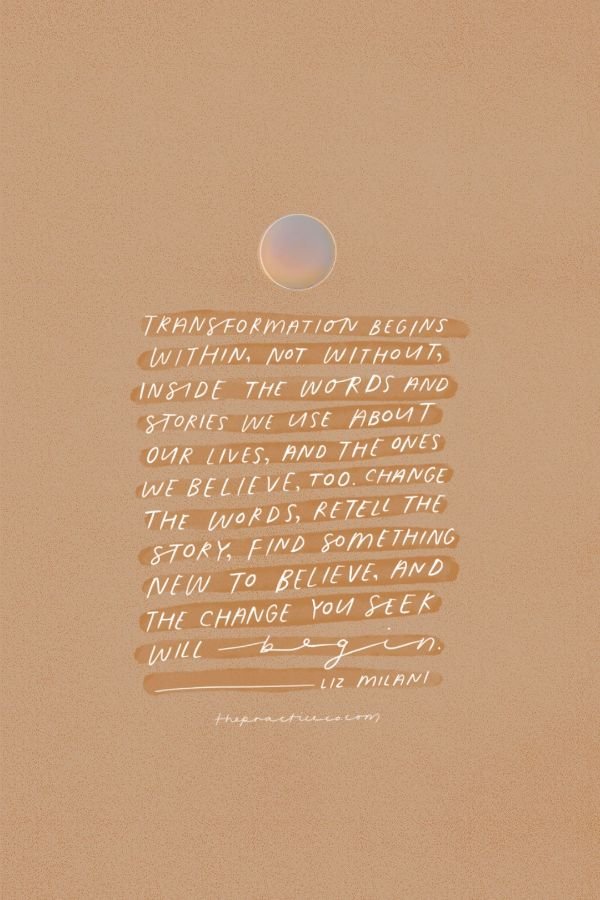 TRANSFORMATION BEGINS
WITHIN, NOT WITHOUT,
INSIDE THE WORDS AND
STORIES WE USE ABOUT
OUR LIVES, AND THE ONES
WE BELIEVE, TOO. CHANGE
THE WORDS, RETELL THE
STORY, FIND SOMETHING
NEW TO BELIEVE, AND
THE CHANGE YOU SEEK
WILL begin.
LIZ MILANI
thepracticeco.com